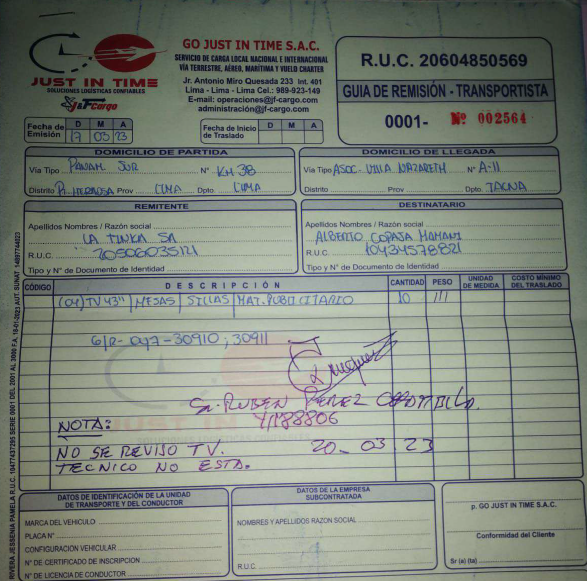 JUST IN TIME
SOLUCIONES LOGÍSTICAS CONFIABLES
J&F Cargo
GO JUST IN TIME S.A.C.
SERVICIO DE CARGA LOCAL NACIONAL E INTERNACIONAL
VÍA TERRESTRE, AÉREO, MARÍTIMA Y VUELO CHARTER
Jr. Antonio Miro Quesada 233 Int. 401
Lima - Lima - Lima Cel.: 989-923-149
E-mail: operaciones@jf-cargo.com
administración@jf-cargo.com
R.U.C. 20604850569
GUIA DE REMISIÓN - TRANSPORTISTA
0001- Nº 002564
Fecha de Emisión D M A
17 03 23
Fecha de Inicio de Traslado D M A
DOMICILIO DE PARTIDA
Vía Tipo PANAM SUR Nº KM 38
Distrito P. HERMOSA Prov LIMA Dpto LIMA
DOMICILIO DE LLEGADA
Vía Tipo ASOC. VILLA NAZARETH Nº A-11
Distrito Prov Dpto. TACNA
REMITENTE
Apellidos Nombres / Razón social
LA TINKA SA
R.U.C. 20506035121
Tipo y Nº de Documento de Identidad
DESTINATARIO
Apellidos Nombres / Razón social
ALBERTO COPAJA MAMANI
R.U.C. 10434578821
Tipo y Nº de Documento de Identidad
CÓDIGO DESCRIPCIÓN CANTIDAD PESO UNIDAD DE MEDIDA COSTO MÍNIMO DEL TRASLADO
(04) TV 43" / MESAS / SILLAS / MAT. PUBLICITARIO 10 111
G/R- 047-30910 ; 30911
Sr. RUBEN PEREZ
NOTA:
NO SE REVISO TV. 20-03.23
TECNICO NO ESTA.
DATOS DE IDENTIFICACIÓN DE LA UNIDAD DE TRANSPORTE Y DEL CONDUCTOR
MARCA DEL VEHICULO
PLACA Nº
CONFIGURACION VEHICULAR
Nº DE CERTIFICADO DE INSCRIPCION
Nº DE LICENCIA DE CONDUCTOR
DATOS DE LA EMPRESA SUBCONTRATADA
NOMBRES Y APELLIDOS RAZON SOCIAL
R.U.C
p. GO JUST IN TIME S.A.C.
Conformidad del Cliente
Sr (a) (ta)